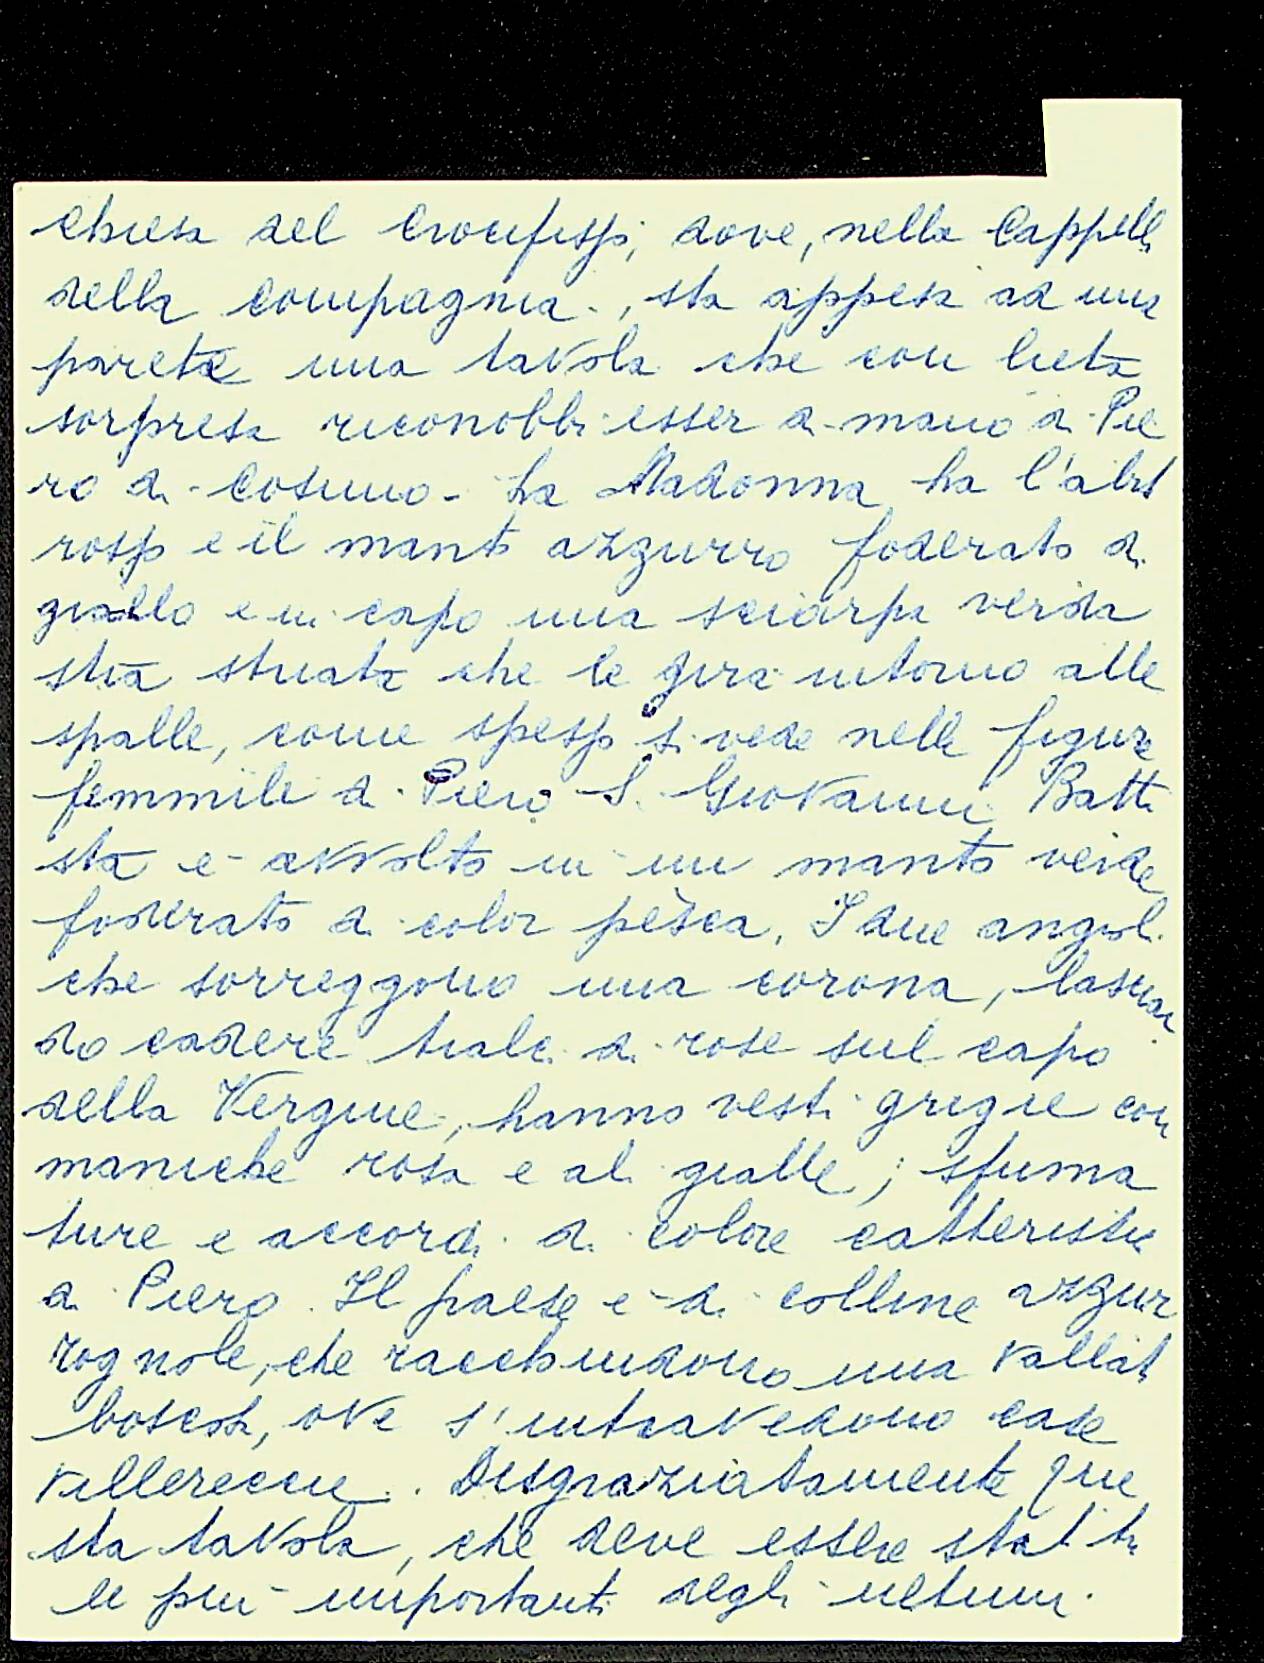 chiesa del Crocifisso, dove, nella Cappella
della Compagnia, sta appesa ad una
parete una tavola che con lieta
sorpresa riconobbi esser di mano di Pie
ro di Cosimo - La Madonna ha l'abito
rosso e il manto azzurro foderato di
giallo e in capo una sciarpa verda
stra striata che le gira intorno alle
spalle, come spesso si vede nelle figure
femminili di Piero S. Giovanni Batti
sta è avvolto in un manto verde
foderato di color pèsca. I due angioli
che sorreggono una corona, lascian
do cadere tralci di rose sul capo
della Vergine, hanno vesti grigie con
maniche rosa e ali gialle; sfuma
ture e accordi di colore catteristici
a Piero. Il paese è di colline azzur
rognole, che racchiudono una vallata
boscosa, ove s'intravedono case
villerecce. Disgraziatamente que
sta tavola, che deve essere stata tra
le più importanti degli ultimi